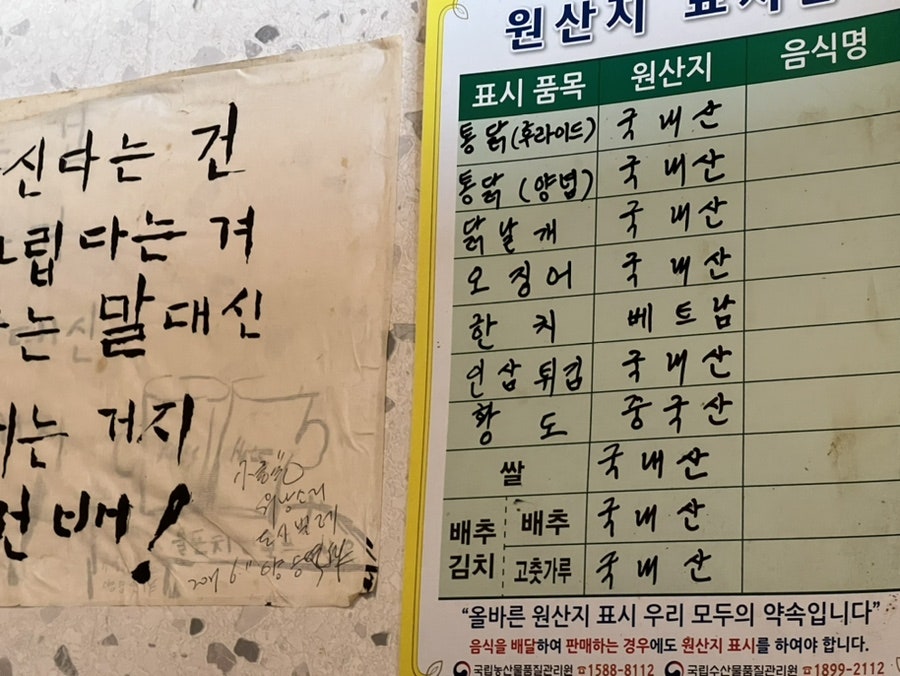 신다는 건
립다는 겨
는 말대신
는 거지
배!
원산지
표시 품목 원산지 음식명
통닭(후라이드) 국내산
통닭(양념) 국내산
닭날개 국내산
오징어 국내산
한치 베트남
인삼튀김 국내산
황도 중국산
쌀 국내산
배추김치 배추 국내산
고춧가루 국내산
“올바른 원산지 표시 우리 모두의 약속입니다”
음식을 배달하여 판매하는 경우에도 원산지 표시를 하여야 합니다.
국립농산물품질관리원 ☎1588-8112 국립수산물품질관리원 ☎1899-2112